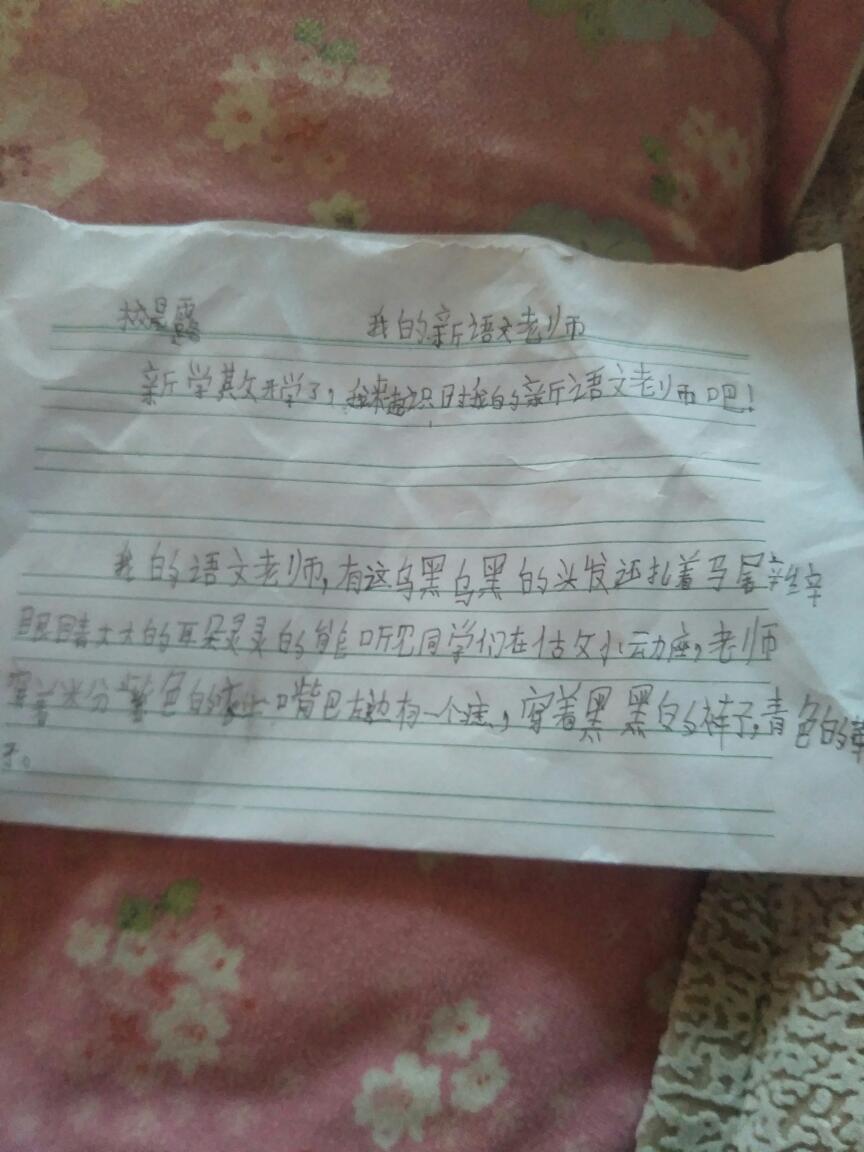 我的新语文老师
新学期开学了，我来认识时我的新语文老师吧！
我的语文老师，有这乌黑乌黑的头发还扎着马尾辫
眼睛大大的耳朵灵灵的能听见同学们在估文小动座，老师
穿着米分紫色的衣上嘴巴左边有一个痣，穿着黑黑的裤子，青色的鞋
子。